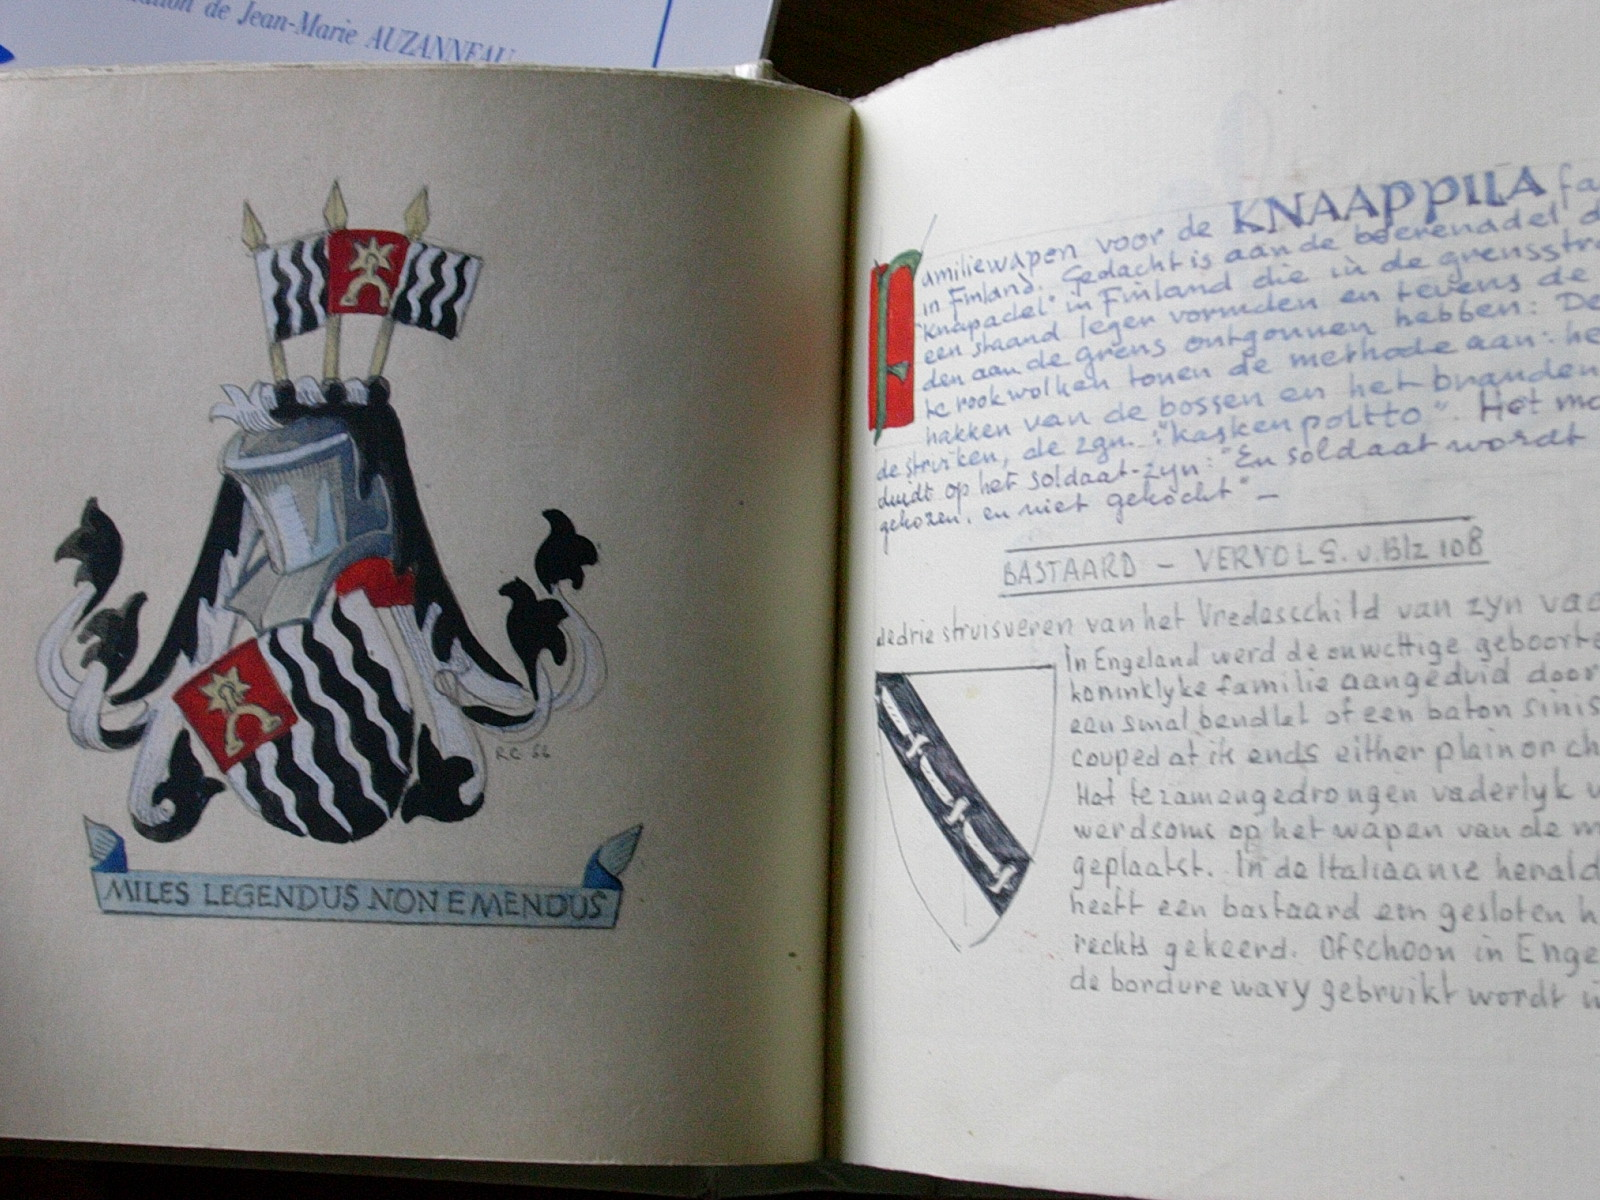 de Jean-Marie AUZANNEAU
R.C. 56
MILES LEGENDUS NON EMENDUS
Familiewapen voor de KNAAPPILA fa
in Finland. Gedacht is aan de boerenadel d
"Knapadel" in Finland die in de grensstre
een staand leger vormden en tevens de
den aan de grens ontgonnen hebben: De
te rookwolken tonen de methode aan: he
hakken van de bossen en het branden
de struiken, de zgn.: "kasken poltto". Het mo
duidt op het soldaat-zyn: "En soldaat wordt
gekozen, en niet gekocht" –
BASTAARD – VERVOLG. v. Blz 108
de drie struisveren van het Vredesschild van zyn vad
In Engeland werd de onwettige geboorte
koninklyke familie aangeduid door
een smal bendlet of een baton sinis
couped at it ends either plain or ch
Het tezamengedrongen vaderlyk w
werd soms op het wapen van de m
geplaatst. In de Italiaanse herald
heeft een bastaard een gesloten h
rechts gekeerd. Ofschoon in Enge
de bordure wavy gebruikt wordt i